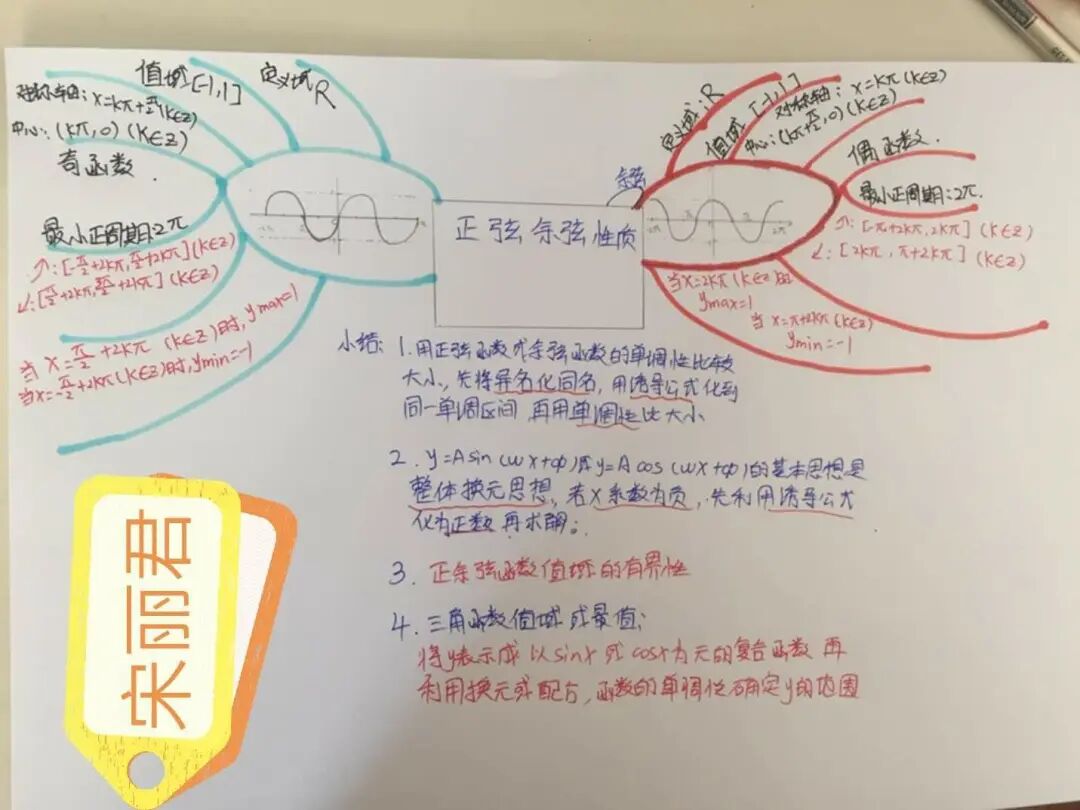 定义域 R
值域 [-1,1]
对称轴: x=kπ+π/2 (k∈Z)
中心: (kπ,0) (k∈Z)
奇函数.
最小正周期:2π
↗: [-π/2+2kπ, π/2+2kπ] (k∈Z)
↙: [π/2+2kπ, 3π/2+2kπ] (k∈Z)
当 x=π/2+2kπ (k∈Z)时, ymax=1
当x=-π/2+2kπ(k∈Z)时,ymin=-1
正弦余弦性质
余弦
定义域: R
值域 [-1,1]
对称轴: x=kπ (k∈Z)
中心: (kπ+π/2,0) (k∈Z)
偶函数.
最小正周期:2π.
↗: [-π+2kπ, 2kπ] (k∈Z)
↙: [2kπ, π+2kπ] (k∈Z)
当x=2kπ(k∈Z)时
ymax=1
当 x=π+2kπ(k∈Z)
ymin=-1
小结: 1. 用正弦函数或余弦函数的单调性比较
大小, 先将异名化同名, 用诱导公式化到
同一单调区间 再用单调性比大小
2. y=Asin(ωx+φ)或y=Acos(ωx+φ)的基本思想是
整体换元思想, 若x系数为负, 先利用诱导公式
化为正数 再求解;
3. 正余弦函数值域的有界性
4. 三角函数值域或最值:
将y表示成 以sinx或cosx为元的复合函数 再
利用换元或配方, 函数的单调性确定y的范围
宋丽君